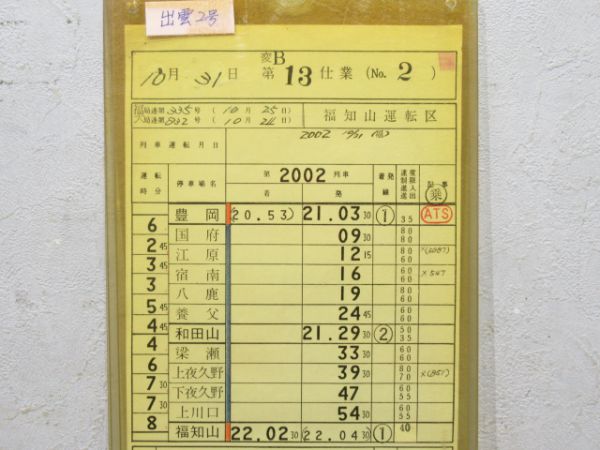 出雲2号
変B
10月 31日 第13仕業 (No. 2 )
福局達第335号 ( 10月 25日 )
大局達第832号 ( 10月 24日 )
福知山運転区
列車運転月日 2002 10/31
運転時分 停車場名 第 2002 列車 着 発 着発線 制限速度 記事
乗
豊岡 (20.53) 21.03 30 ① 35 ATS
6
国府 09 30 80 80
2 45
江原 12 15 80 60 ×(2087)
3 45
宿南 16 60 60 ×547
3
八鹿 19 80 60
5 45
養父 24 45 60 60
4 45
和田山 21.29 30 ② 50 35
4
梁瀬 33 30 60 60
6
上夜久野 39 30 80 70 ×(851)
7 30
下夜久野 47 60 55
7 30
上川口 54 30 60 55
8
福知山 22.02 30 (22.04 30) ① 40